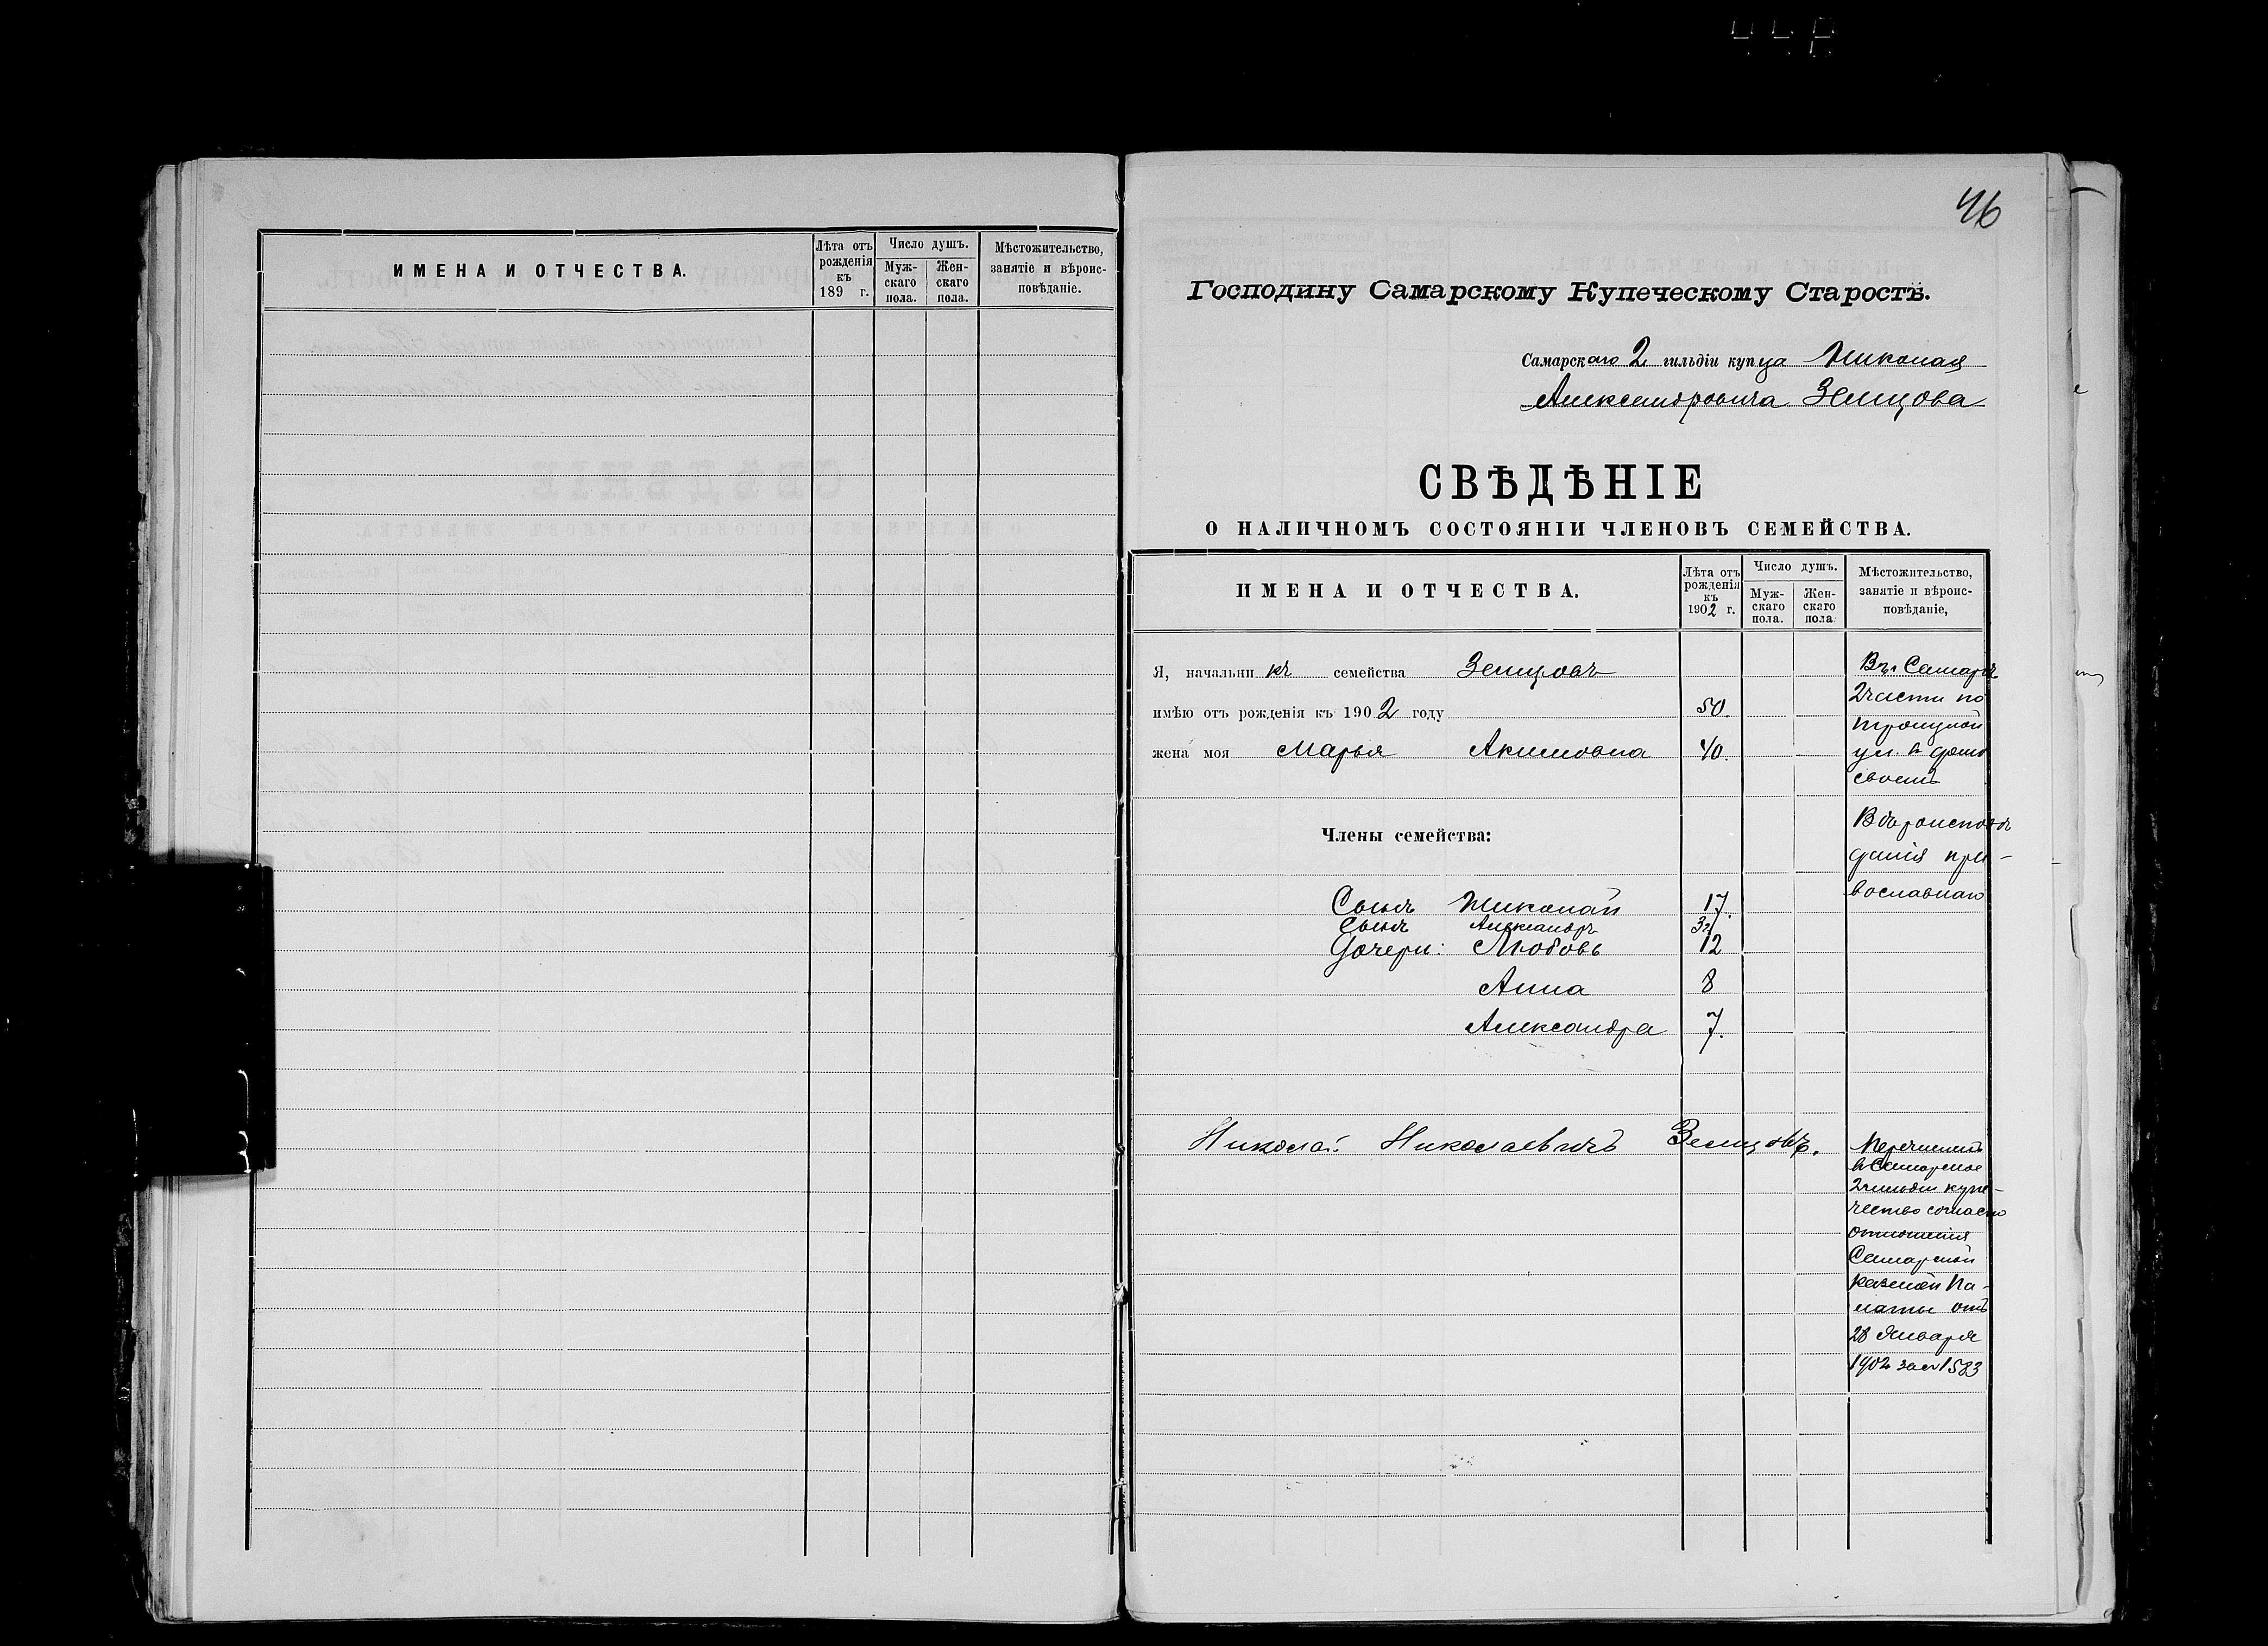 ИМЕНА И ОТЧЕСТВА.
Лѣта отъ рожденія къ 189 г.
Число душъ.
Мужскаго пола.
Женскаго пола.
Мѣстожительство, занятіе и вѣроисповѣданіе.
46
Господину Самарскому Купеческому Старостѣ.
Самарскаго 2 гильдіи купца Николая
Александровича Земцова
СВѢДѢНІЕ
О НАЛИЧНОМЪ СОСТОЯНІИ ЧЛЕНОВЪ СЕМЕЙСТВА.
ИМЕНА И ОТЧЕСТВА.
Лѣта отъ
рожденія
къ
1902 г.
Число душъ.
Муж-
скаго
пола.
Жен-
скаго
пола.
Мѣстожительство,
занятіе и вѣроис-
повѣданіе,
Я, начальникъ семейства Земцовъ
имѣю отъ рожденія къ 1902 году 50.
жена моя Марья Акимовна 40.
Въ г Самарѣ
2 части по
Троицкой
ул. в домѣ
своемъ
Вѣроисповѣ
данія пра-
вославнаго
Члены семейства:
Сынъ Николай 17.
Сынъ Александръ
Дочери: Любовь 12
Анна 8
Александра 7.
Николай Николаевичъ Земцовъ.
Перечисленъ
в Самарское
2 гильдіи купе-
чество согласно
отношенія
Самарской
Казенной Па-
латы отъ
28 Января
1902 за № 1583